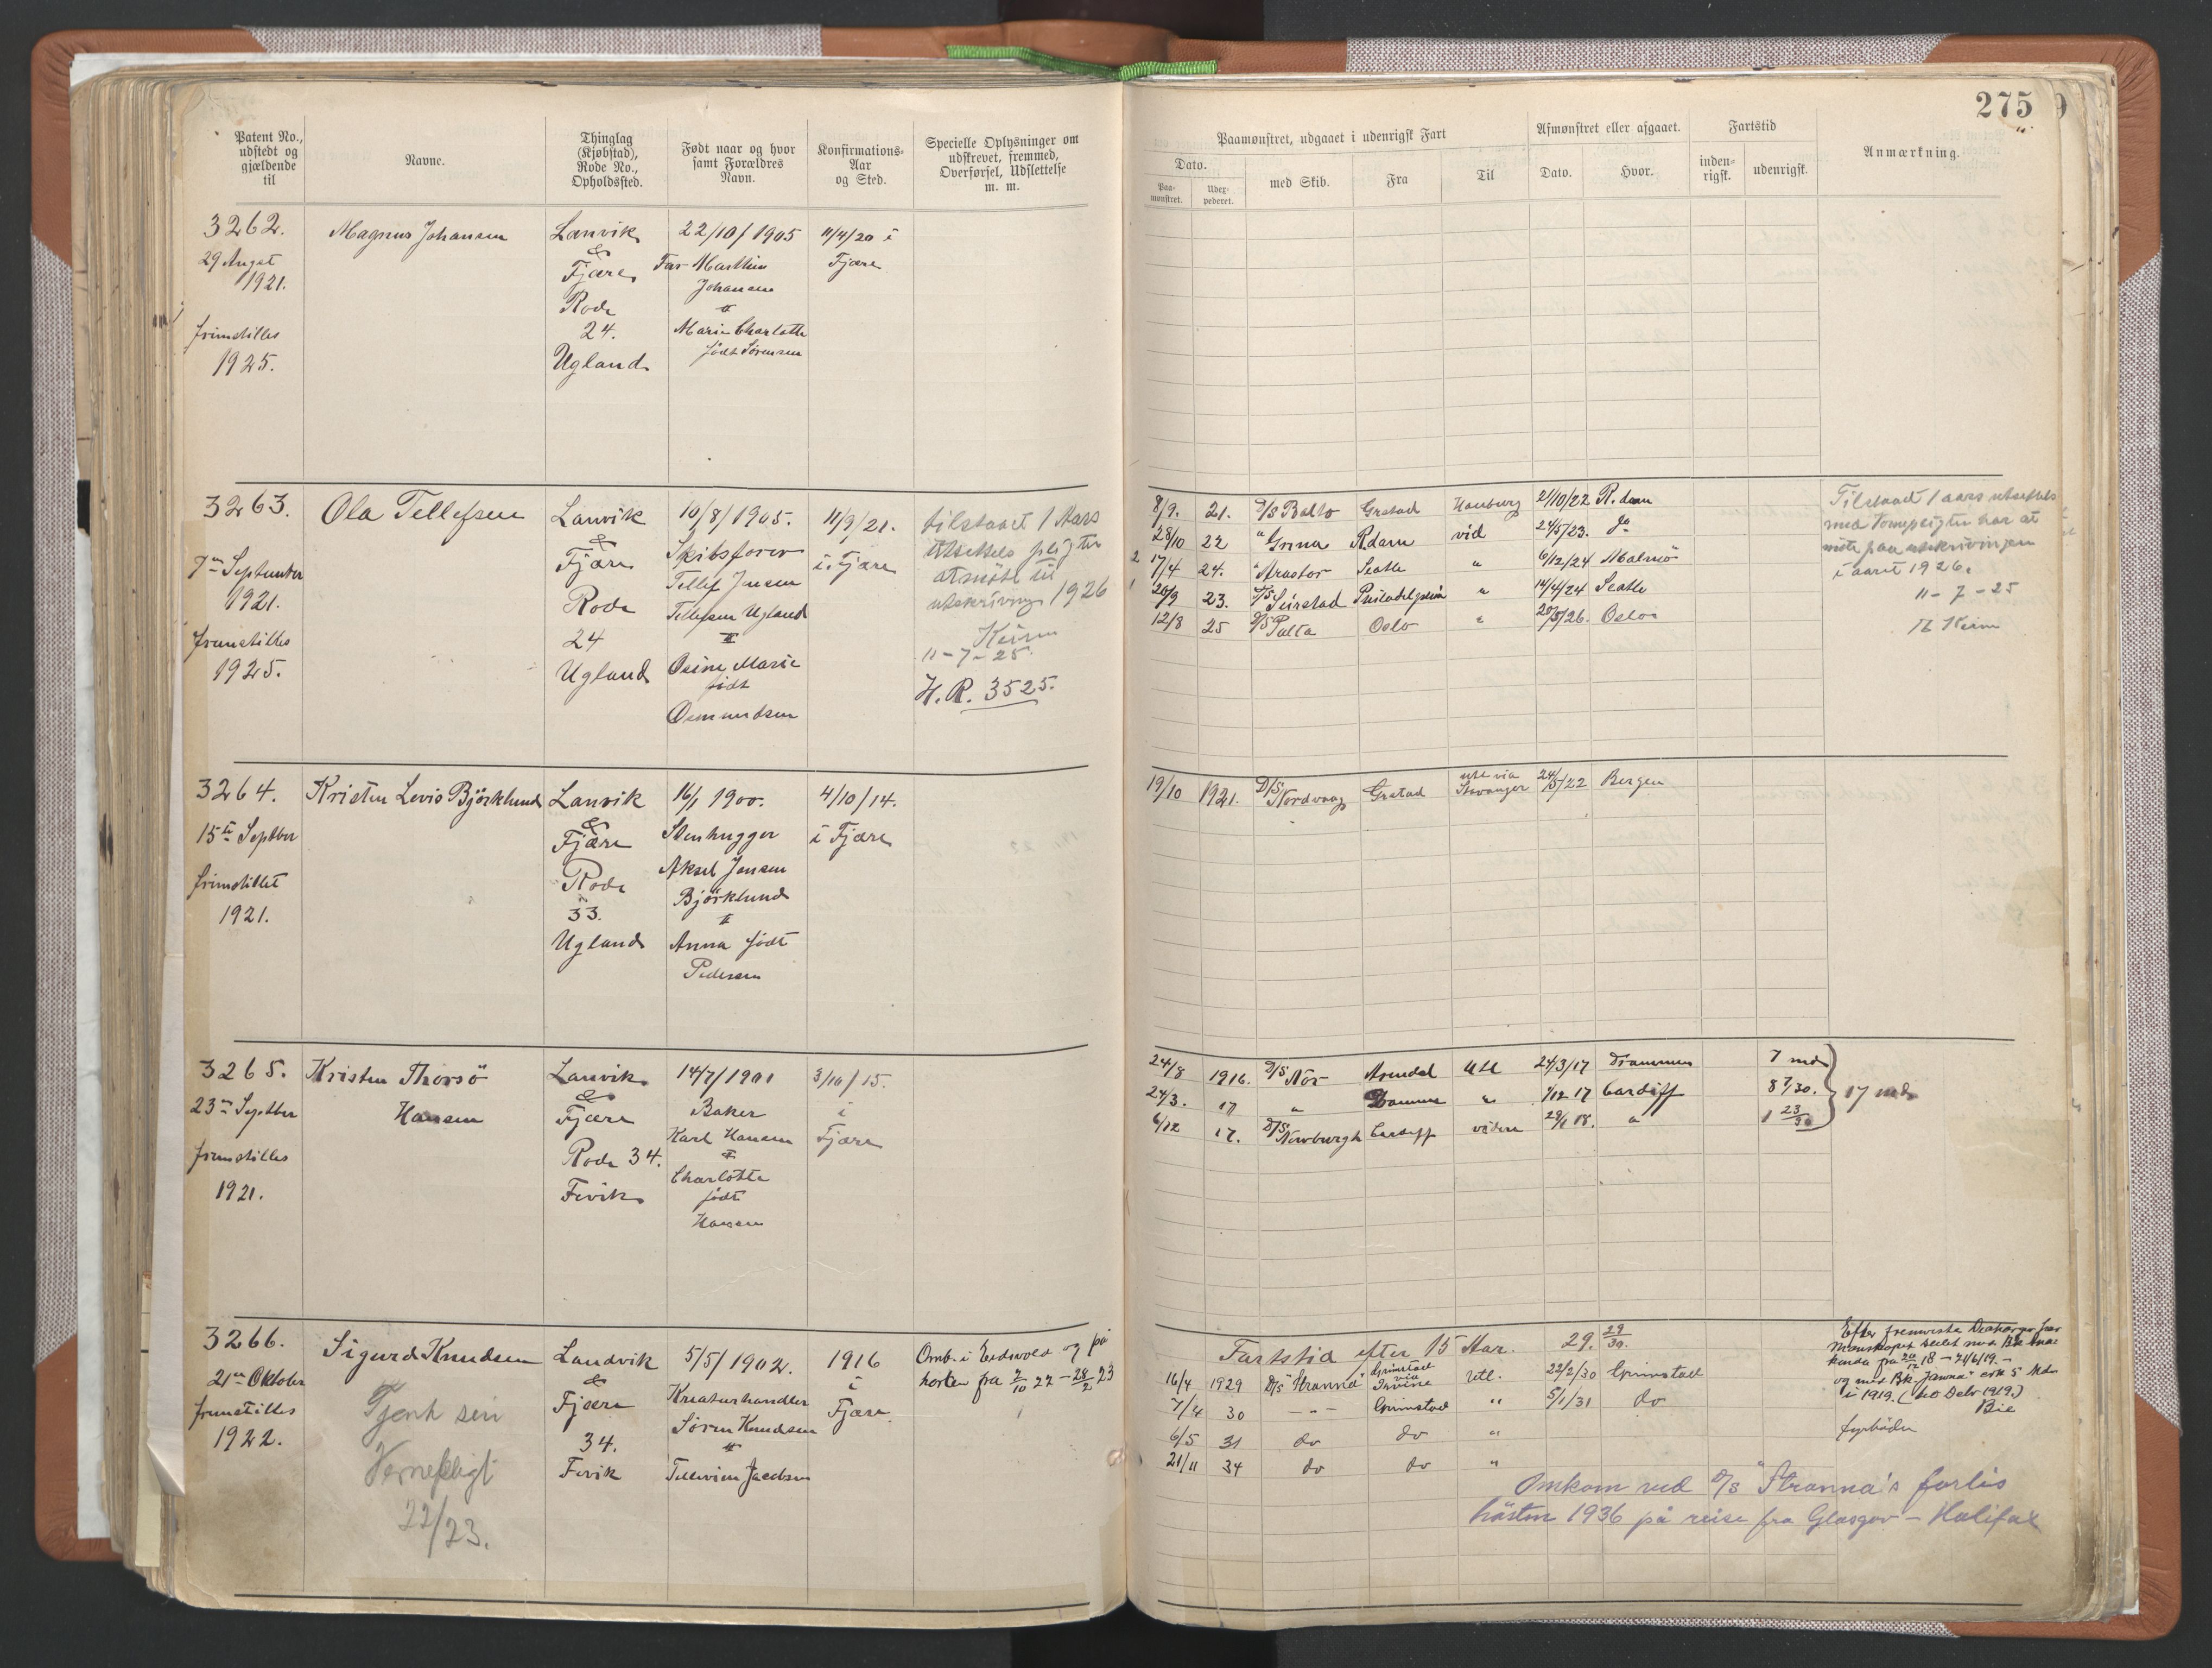 275
Patent No., udstedt og gjældende til
Navne.
Thinglag (Kjøbstad), Rode No., Opholdssted.
Født naar og hvor samt Forældres Navn.
Konfirmations-Aar og Sted.
Specielle Oplysninger om udskrevet, fremmed, Overførsel, Udslettelse m. m.
Paamønstret, udgaaet i udenrigsk Fart
Dato.
Paa-mønstret.
Udex-pederet.
med Skib.
Fra
Til
Afmønstret eller afgaaet.
Dato.
Hvor.
Fartstid
inden-rigsk.
udenrigsk.
Anmærkning.
3262.
29 August
1921.
frimstilles
1925.
Magnus Johansen
Lanvik
&
Fjære
Rode
24.
Ugland
22/10/1905
Far Marthin
Johansen
Marie Charlotte
født Sørensen
11/4/20 i
Fjære
3263.
7de September
1921.
fremstilles
1925.
Ola Tellefsen
Lanvik
&
Fjære
Rode
24
Ugland
10/8/1905.
Skibsfører
Tellef Jensen
Tellefsen Ugland
Osine Marie
født
Osmundsen
11/9/21.
i Fjære
tilstaaet 1 Aars
utsettels pligter
at møte til
utskrivning 1926
Keim
11-7-25.
H.R. 3525.
8/9. 21. D/S Balto Grstad Hamburg 21/10/22 R.dam
28/10 22 " Grena R.dam vid 24/5/23. do
2 17/4 24. " Arastor Seatle " 6/12/24 Malmö
1 20/9 23. D/S Seirstad Philadelphia " 14/4/24 Seatle
12/8 25 D/S Palta Oslo " 20/5/26. Oslo
Tilstaaet 1 aars utsettels
med tompligter har at
møte paa utskrivingen
i aaret 1926.
11-7-25
H Keim
3264.
15de Septber
frimstillet
1921.
Kristen Levis Björklund
Lanvik
&
Fjære
Rode
33.
Ugland
16/1 1900.
Stenhugger
Aksel Jensen
Björklund
Anna født
Pedersen
4/10/14.
i Fjære
19/10 1921. D/S Nordvaag Grstad ute via Stavanger 24/5/22 Bergen
3265.
23de Septber
fremstilles
1921.
Kristen Thorsö
Hansen
Lanvik
&
Fjære
Rode 34.
Fevik
14/7/1901
Baker
Karl Hansen
Charlotte
født
Hansen
3/10/15.
i
Fjære
24/8 1916. D/S Nör Arendal Utl 24/3/17 Drammen 7 md
24/3. 17 " Dramme " 1/12 17 Cardiff 8 7/30.
6/12 17. D/S Newburgh Cardiff videre 29/1 18. " 1 23/30
17 mds
3266.
21de Oktober
fremstilles
1922.
Sigurd Knudsen
Tjent sin
Vernepligt
22/23.
Landvik
&
Fjære
34.
Fevik
5/5/1902.
Kreaturhandler
Søren Knudsen
Tellevine Jacobsen
1916
i
Fjære
Omb. i Eidsvold og på
horten fra 2/10 22 - 28/2 23
Fartstid efter 15 Aar. 29. 29/30.
16/4 1929 D/S "Stranna" Grimstad via Irvine Utl. 22/2/30 Grimstad
7/4 30 -"- Grimstad " 5/1/31 do
6/5 31 do do "
21/11 34 do do "
Omkom ved D/S "Stranna's forlis
hösten 1936 på reise fra Glasgov - Halifax
Efter fremviste
fra 20/12 18 - 21/6/19. -
og med Bk. "Janna"
i 1919.
Bie
fyrböder